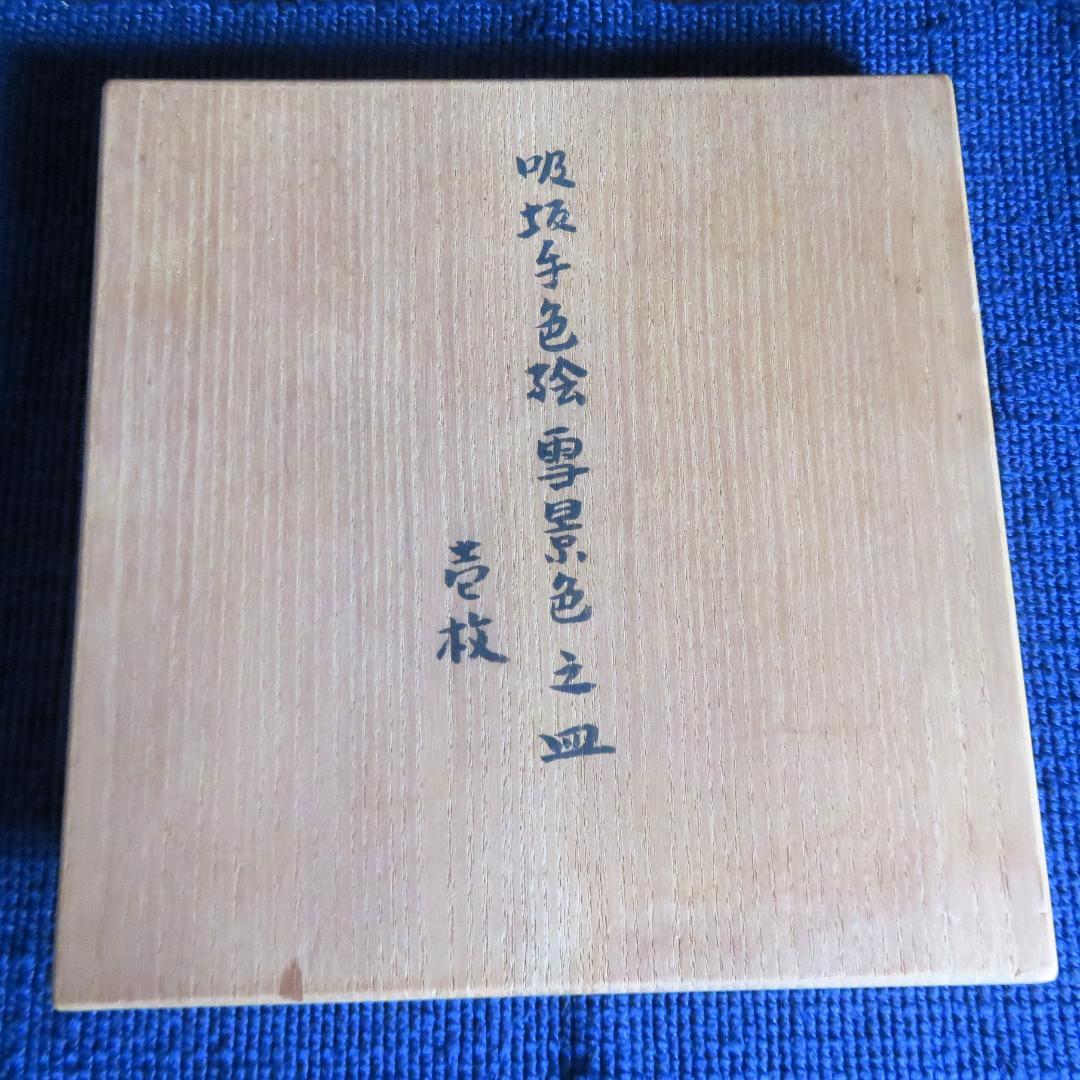 吸坂手色絵雪景色之皿
壱枚